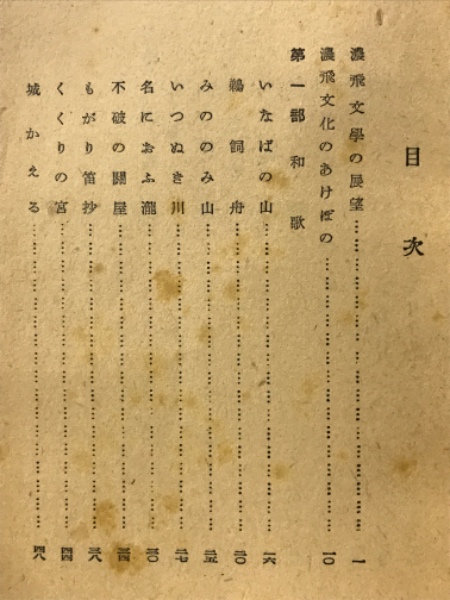 目次
濃飛文學の展望……一
濃飛文化のあけぼの……一〇
第一部 和歌
いなばの山……一六
鵜飼舟……二〇
みののみ山……二五
いつぬき川……二七
名におふ瀧……三〇
不破の關屋……三四
もがり笛抄……三八
くくりの宮……四四
城かえる……四八